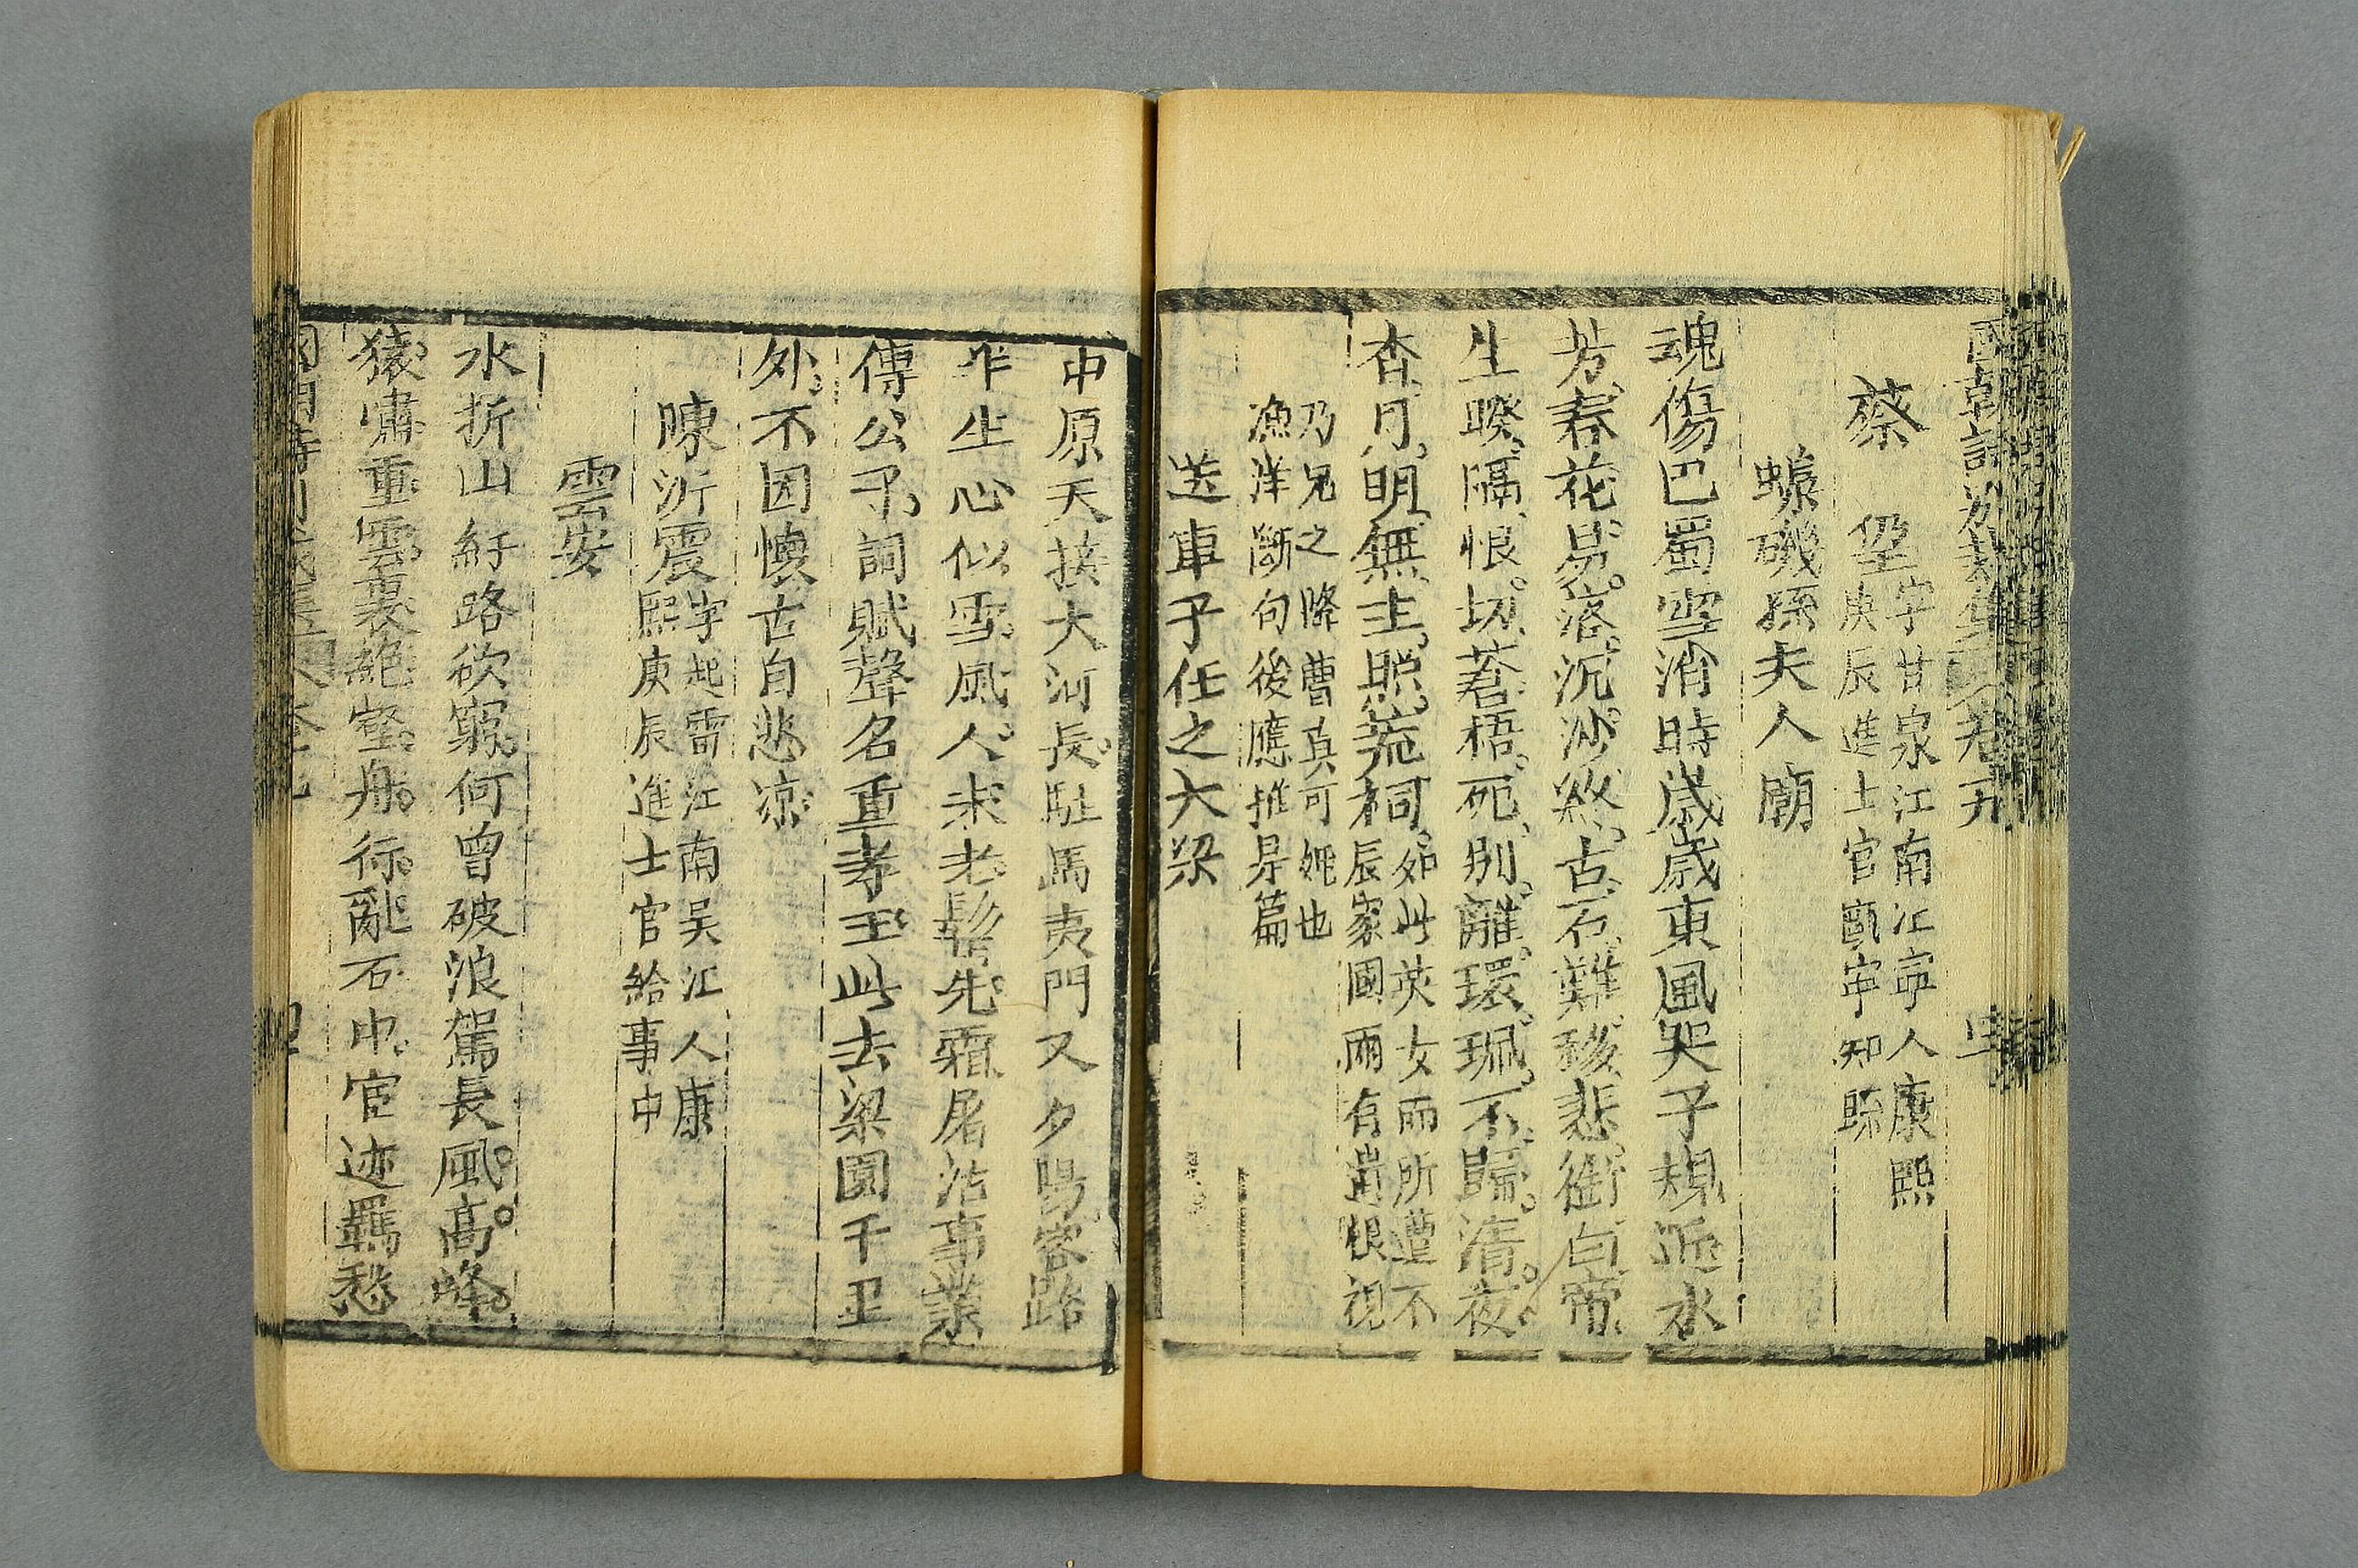 國朝詩別裁集 卷五
蔡 望 字甘泉江南江寧人康熙
庚辰進士官甌寧知縣
蟂磯孫夫人廟
魂傷巴蜀雪消時歲歲東風哭子規近水
芳春花易落沉沙終古石難移悲銜白帝
生睽隔恨切蒼梧死別離環珮不歸清夜
杳月明無主照荒祠 如此英女而所遭不
辰家國兩有遺恨視
乃兄之降曹真可媿也
漁洋斷句後應推是篇
送車子任之大梁
中原天接大河長駐馬夷門又夕陽客路
乍生心似雪風人未老髩先霜屠沽事業
傳公子詞賦聲名重孝王此去梁園千里
外不因懷古自悲凉
陳沂震 字起雷江南吴江人康
熙庚辰進士官給事中
雲安
水折山紆路欲窮何曾破浪駕長風高峰
猿嘯重雲裏絶壑舟行亂石中宦迹羈愁